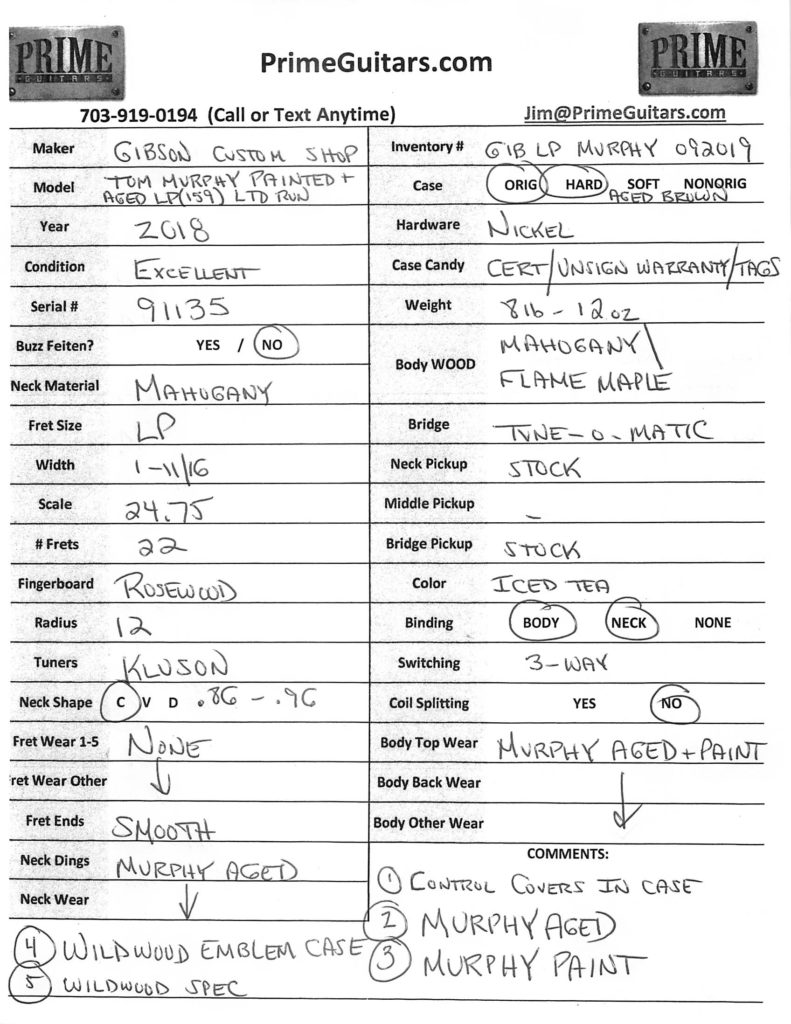 PRIME GUITARS
PrimeGuitars.com
PRIME GUITARS
703-919-0194 (Call or Text Anytime)
Jim@PrimeGuitars.com
Maker GIBSON CUSTOM SHOP
Model TOM MURPHY PAINTED + AGED LP('59) LTD RUN
Year 2018
Condition EXCELLENT
Serial # 91135
Buzz Feiten? YES / NO
Neck Material MAHOGANY
Fret Size LP
Width 1-11/16
Scale 24.75
# Frets 22
Fingerboard ROSEWOOD
Radius 12
Tuners KLUSON
Neck Shape C V D .86 - .96
Fret Wear 1-5 NONE
ret Wear Other
Fret Ends SMOOTH
Neck Dings MURPHY AGED
Neck Wear
Inventory # GIB LP MURPHY 092019
Case ORIG HARD SOFT NONORIG
AGED BROWN
Hardware NICKEL
Case Candy CERT/UNSIGN WARRANTY/TAGS
Weight 8lb - 12oz
Body WOOD MAHOGANY\
FLAME MAPLE
Bridge TUNE-O-MATIC
Neck Pickup STOCK
Middle Pickup -
Bridge Pickup STOCK
Color ICED TEA
Binding BODY NECK NONE
Switching 3-WAY
Coil Splitting YES NO
Body Top Wear MURPHY AGED + PAINT
Body Back Wear
Body Other Wear
COMMENTS:
1 CONTROL COVERS IN CASE
2 MURPHY AGED
3 MURPHY PAINT
4 WILDWOOD EMBLEM CASE
5 WILDWOOD SPEC